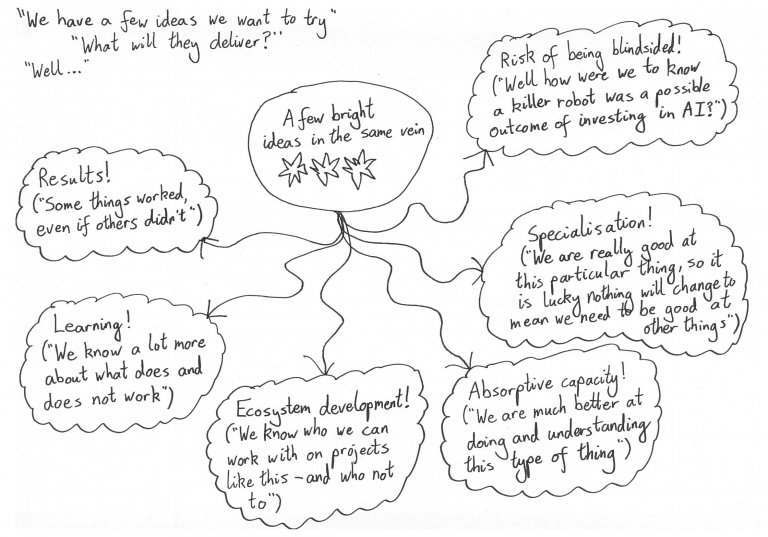 "We have a few ideas we want to try"
"What will they deliver?"
"Well..."
A few bright
ideas in the same vein
Risk of being blindsided!
("Well how were we to know
a killer robot was a possible
outcome of investing in AI?")
Results!
("Some things worked,
even if others didn't")
Specialisation!
("We are really good at
this particular thing, so it
is lucky nothing will change to
mean we need to be good at
other things")
Learning!
("We know a lot more
about what does and
does not work")
Ecosystem development!
("We know who we can
work with on projects
like this - and who not
to")
Absorptive capacity!
("We are much better at
doing and understanding
this type of thing")